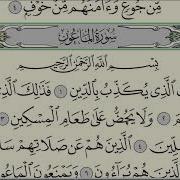 مِّن جُوعٍ وَءَامَنَهُم مِّنْ خَوْفٍ ٤
سُورَةُ المَاعُونِ
بِسْمِ اللَّهِ الرَّحْمَٰنِ الرَّحِيمِ
الَّذِي يُكَذِّبُ بِالدِّينِ ١ فَذَٰلِكَ الَّذِي
وَلَا يَحُضُّ عَلَىٰ طَعَامِ الْمِسْكِينِ ٣
الَّذِينَ هُمْ عَن صَلَاتِهِمْ
الَّذِينَ هُمْ يُرَاءُونَ ٦ وَيَمْنَعُونَ الْمَاعُونَ